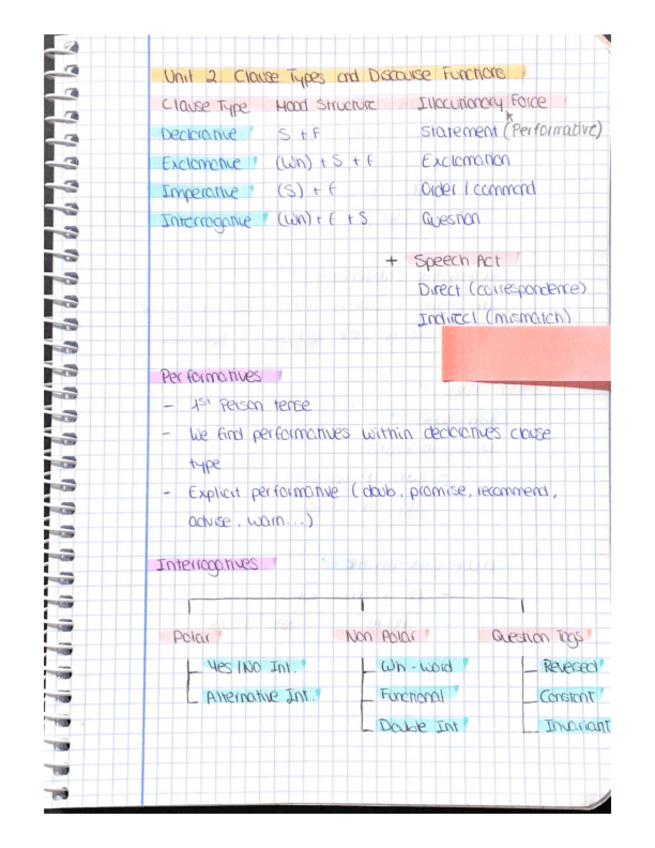 Unit 2. Clause Types and Discourse Functions
Clause Type Mood Structure Illocutionary Force
Declarative S + F Statement (Performative)
Exclamative (Wh) + S + F Exclamation
Imperative (S) + F Order / command
Interrogative (Wh) + F + S Question
+ Speech Act
Direct (correspondence)
Indirect (mismatch)
Performatives
- 1st Person tense
- We find performatives within declaratives clause
type
- Explicit performative ( , promise, recommend,
advise, warn...)
Interrogatives
Polar Non Polar Question Tags
Yes/No Int. Wh-word Reversed
Alternative Int. Functional Constant
Double Int Invariant